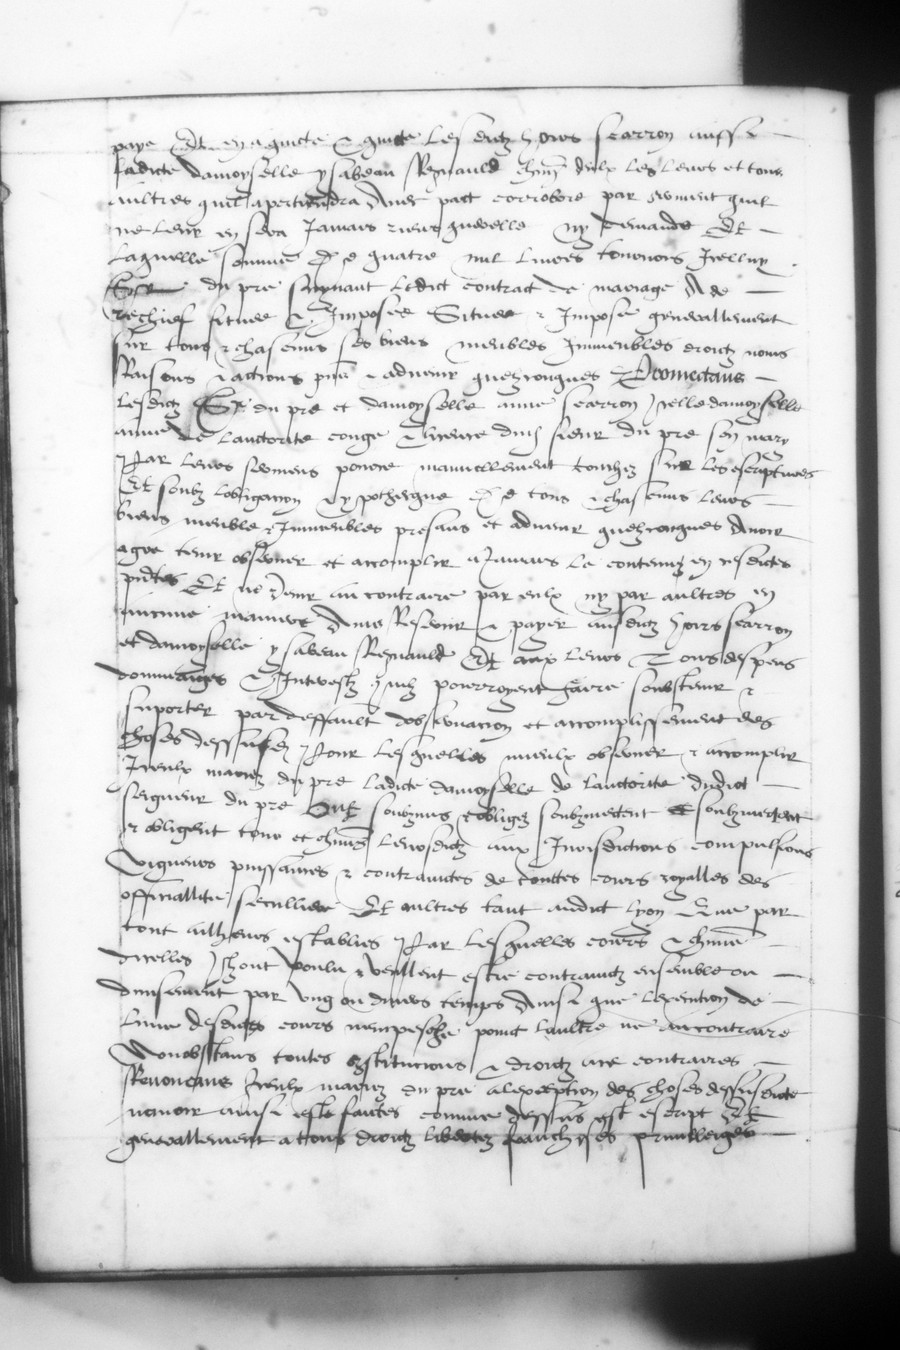 paye Et en aquicte & quicte lesdictz hoirs Scarron aussi
ladicte damoyselle ysabeau Regnauld chun deulx les leurs et tous
aultres quil apertiendra Avec pact corrobore par serment quil
ne leur en sera Jamais riens querelle ny demande Et
laquelle somme de quatre mil livres tournois Icelluy
Sr du pre suyvant ledict contract de mariage A de
rechief situee & Imposee Situe & Impose generallement
sur tous & chascuns ses biens meubles Immeubles droictz noms
Raisons & actions pns & advenir quelzconques Promectans
lesdictz Sr du pre et damoyselle anne scarron Icelle damoyselle
anne de lauctorite conge & licence dud sieur du pre son mary
Par leurs seremens pource manuellement touchez sur les escriptures
Et soubz lobligacion & ypothecque de tous & chascuns leurs
biens meuble & Immeubles presans et advenir quelzconques Avoir
agre tenir observer et accomplir a Jamais le contenu en cesdictes
pntes Et ne venir au contraire par eulx ny par aultres en
aucune maniere Ains Rescevoir & payer ausdictz hoirs scarron
et damoyselle ysabeau Regnauld Et aux leurs Tous despens
dommaiges & Interestz quilz pourroyent faire soubstenir &
suporter par deffault dobservacion et accomplissement des
choses dessusd Pour lesquelles mieulx observer & accomplir
Iceulx mariez du pre ladicte damoyselle de lauctorite dudict
seigneur du pre Ont soubzmis & obligez soubzmectent Et soubzmectent
& obligent tous et chuns leursdictz aux Jurisdictions compulsions
vigueurs puissances & contrainctes de toutes cours royalles des
officiallite seculliere Et aultres tant audict lyon Que par
tout ailheurs establies Par lesquelles cours & chune
dicelles Ilz hont voulu & veullent estre contrainctz ensemble ou
divisement par ung ou divers temps Ainsi que lexecution de
lune desdictes cours nempesche point laultre ne au contraire
Nonobstans toutes constitucions & droictz ace contraires
Renoncans Iceulx mariez du pre alexception des choses dessusdicte
navoir ainsi este faictes comme dessus est escript Et
generallement a tous droictz libertez franchises privilleiges